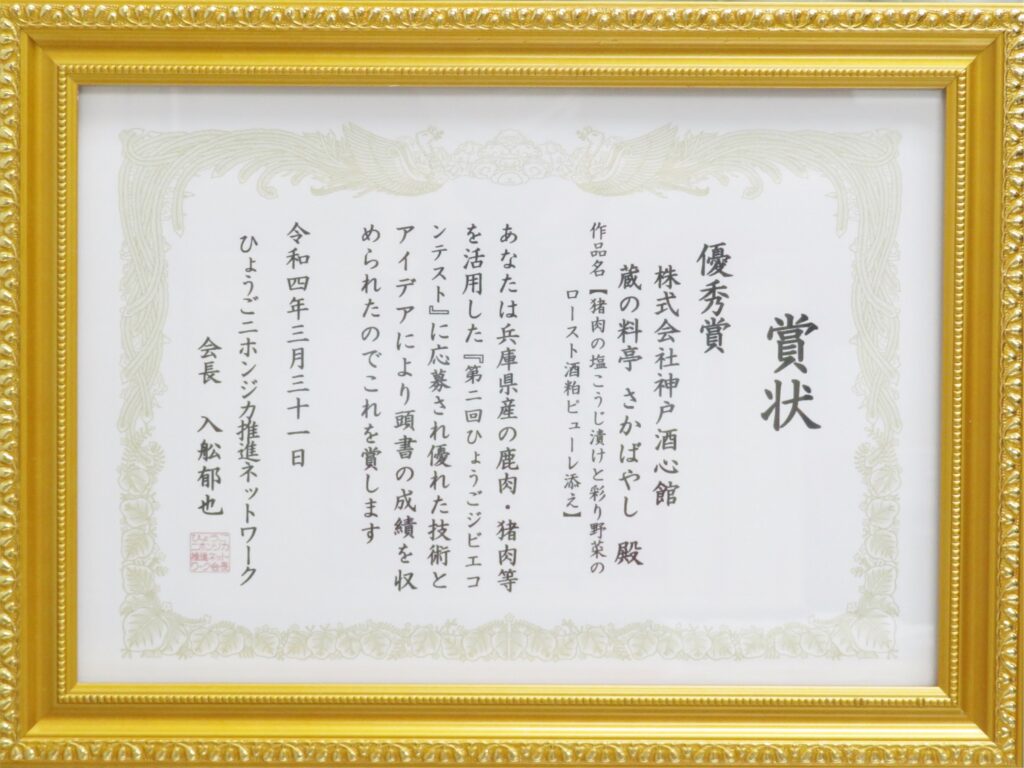 賞状
優秀賞
株式会社神戸酒心館
蔵の料亭 さかばやし 殿
作品名【猪肉の塩こうじ漬けと彩り野菜の
ロースト酒粕ピューレ添え】
あなたは兵庫県産の鹿肉・猪肉等
を活用した『第二回ひょうごジビエコ
ンテスト』に応募され優れた技術と
アイデアにより頭書の成績を収
められたのでこれを賞します
令和四年三月三十一日
ひょうごニホンジカ推進ネットワーク
会長 入舩郁也
ひょうご
ニホンジカ
推進ネット
ワーク会長